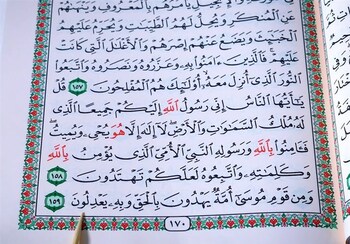 عَنِ ٱلْمُنكَرِ وَيُحِلُّ لَهُمُ ٱلطَّيِّبَٰتِ وَيُحَرِّمُ عَلَيْهِمُ
ٱلْخَبَٰٓئِثَ وَيَضَعُ عَنْهُمْ إِصْرَهُمْ وَٱلْأَغْلَٰلَ ٱلَّتِى كَانَتْ
عَلَيْهِمْ ۚ فَٱلَّذِينَ ءَامَنُوا۟ بِهِۦ وَعَزَّرُوهُ وَنَصَرُوهُ وَٱتَّبَعُوا۟
ٱلنُّورَ ٱلَّذِىٓ أُنزِلَ مَعَهُۥٓ ۙ أُو۟لَٰٓئِكَ هُمُ ٱلْمُفْلِحُونَ ١٥٧ قُلْ
يَٰٓأَيُّهَا ٱلنَّاسُ إِنِّى رَسُولُ ٱللَّهِ إِلَيْكُمْ جَمِيعًا ٱلَّذِى
لَهُۥ مُلْكُ ٱلسَّمَٰوَٰتِ وَٱلْأَرْضِ ۖ لَآ إِلَٰهَ إِلَّا هُوَ يُحْىِۦ وَيُمِيتُ ۖ
فَـَٔامِنُوا۟ بِٱللَّهِ وَرَسُولِهِ ٱلنَّبِىِّ ٱلْأُمِّىِّ ٱلَّذِى يُؤْمِنُ بِٱللَّهِ
وَكَلِمَٰتِهِۦ وَٱتَّبِعُوهُ لَعَلَّكُمْ تَهْتَدُونَ ١٥٨
وَمِن قَوْمِ مُوسَىٰٓ أُمَّةٌ يَهْدُونَ بِٱلْحَقِّ وَبِهِۦ يَعْدِلُونَ ١٥٩
١٧٠